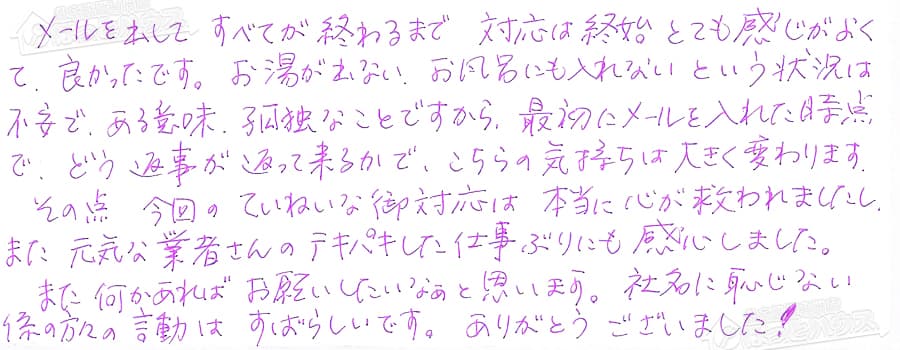 メールを出して すべてが 終わるまで 対応は終始 とても感じがよく
て、良かったです。お湯が出ない、お風呂にも入れない という状況は
不安で、ある意味、孤独なことですから、最初にメールを入れた時点
で、どう返事が返って来るかで、こちらの気持ちは大きく変わります。
その点 今回の ていねいな御対応は 本当に心が救われましたし、
また 元気な業者さんの テキパキした仕事ぶりにも 感心しました。
また何かあれば お願いしたいなぁと思います。社名に恥じない
係の方々の言動は すばらしいです。ありがとう ございました!